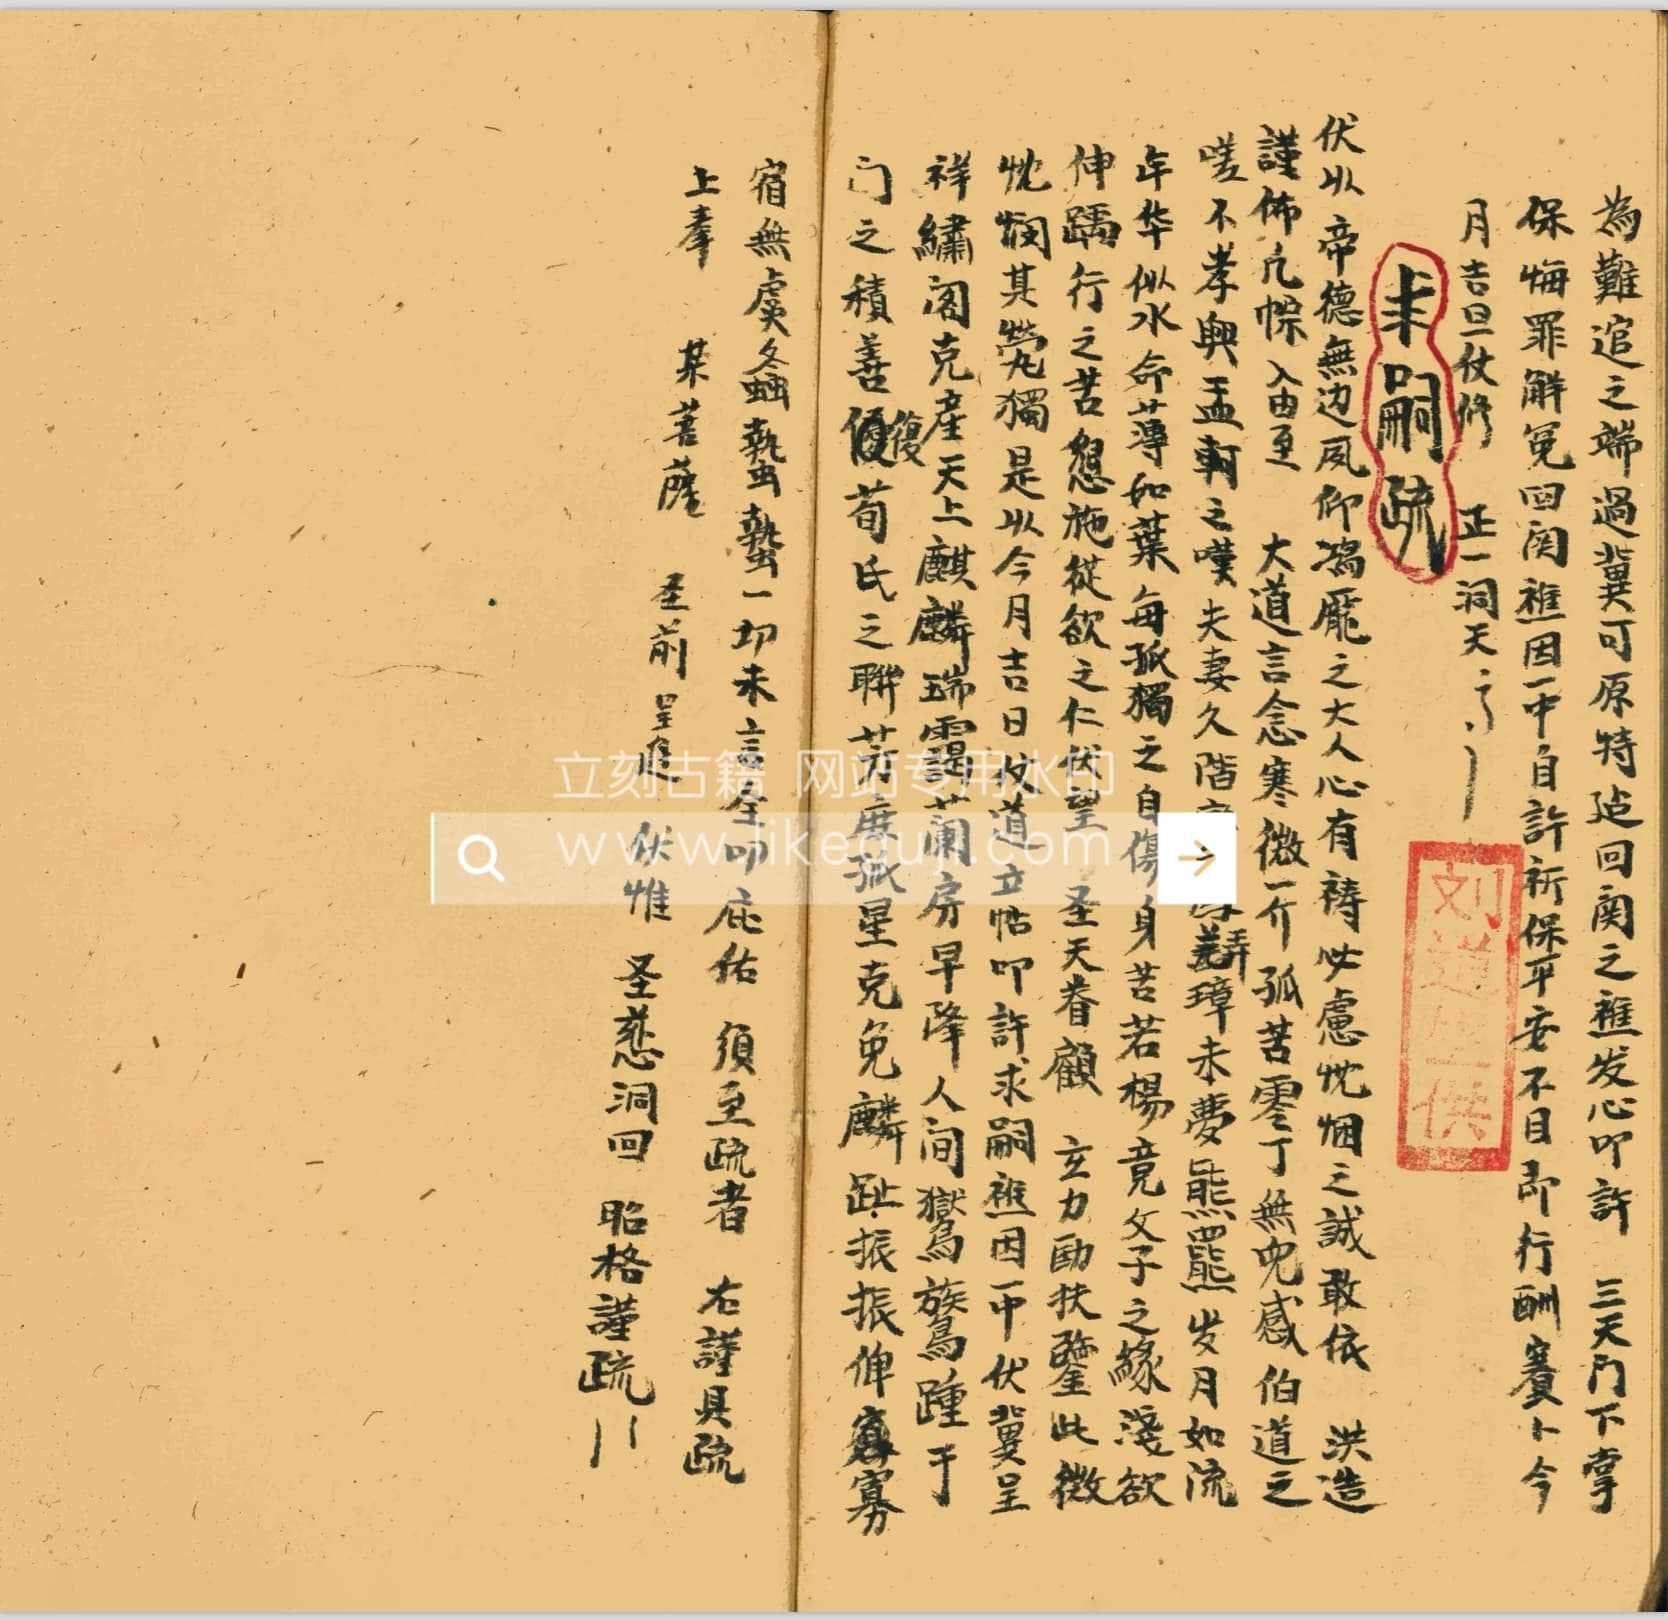 為難逭之端過冀可原特达回関之醮发心叩許　三天門下掌
保悔罪解冤回関醮因一中自許祈保平安不日即行酬賽卜今
月吉旦仗修　正一洞天
求嗣疏
伏以　帝德無边夙仰鴻龐之大人心有祷必慮忱烟之誠敢依　洪造
謹佈凢悰入由至　大道言念寒微一介孤苦零丁無兒感伯道之
嗟不孝興孟軻之嘆夫妻久階璋未夢熊羆岁月如流
年华似水命薄如葉每孤獨之自傷身苦若楊竟父子之緣淺欲
伸踽行之苦懇施従欲之仁伏望　圣天眷顧　玄力勛扶鑒此微
忱憫其煢獨是以今月吉日仗道立帖叩許求嗣醮因一中伏冀呈
祥繡阁克産天上麒麟瑞靄蘭房早降人间鸑鷟踵于
门之積善復荀氏之聯芳度孤星克免麟趾振振俾寡
宿無虞冬螽蟄蟄一切未言全叩庇佑　須至疏者　右謹具疏
上奉　某菩薩　圣前呈進　伏惟　圣慈洞回　昭格謹疏
刘道生供
立刻古籍 网站专用水印
www.likeguji.com